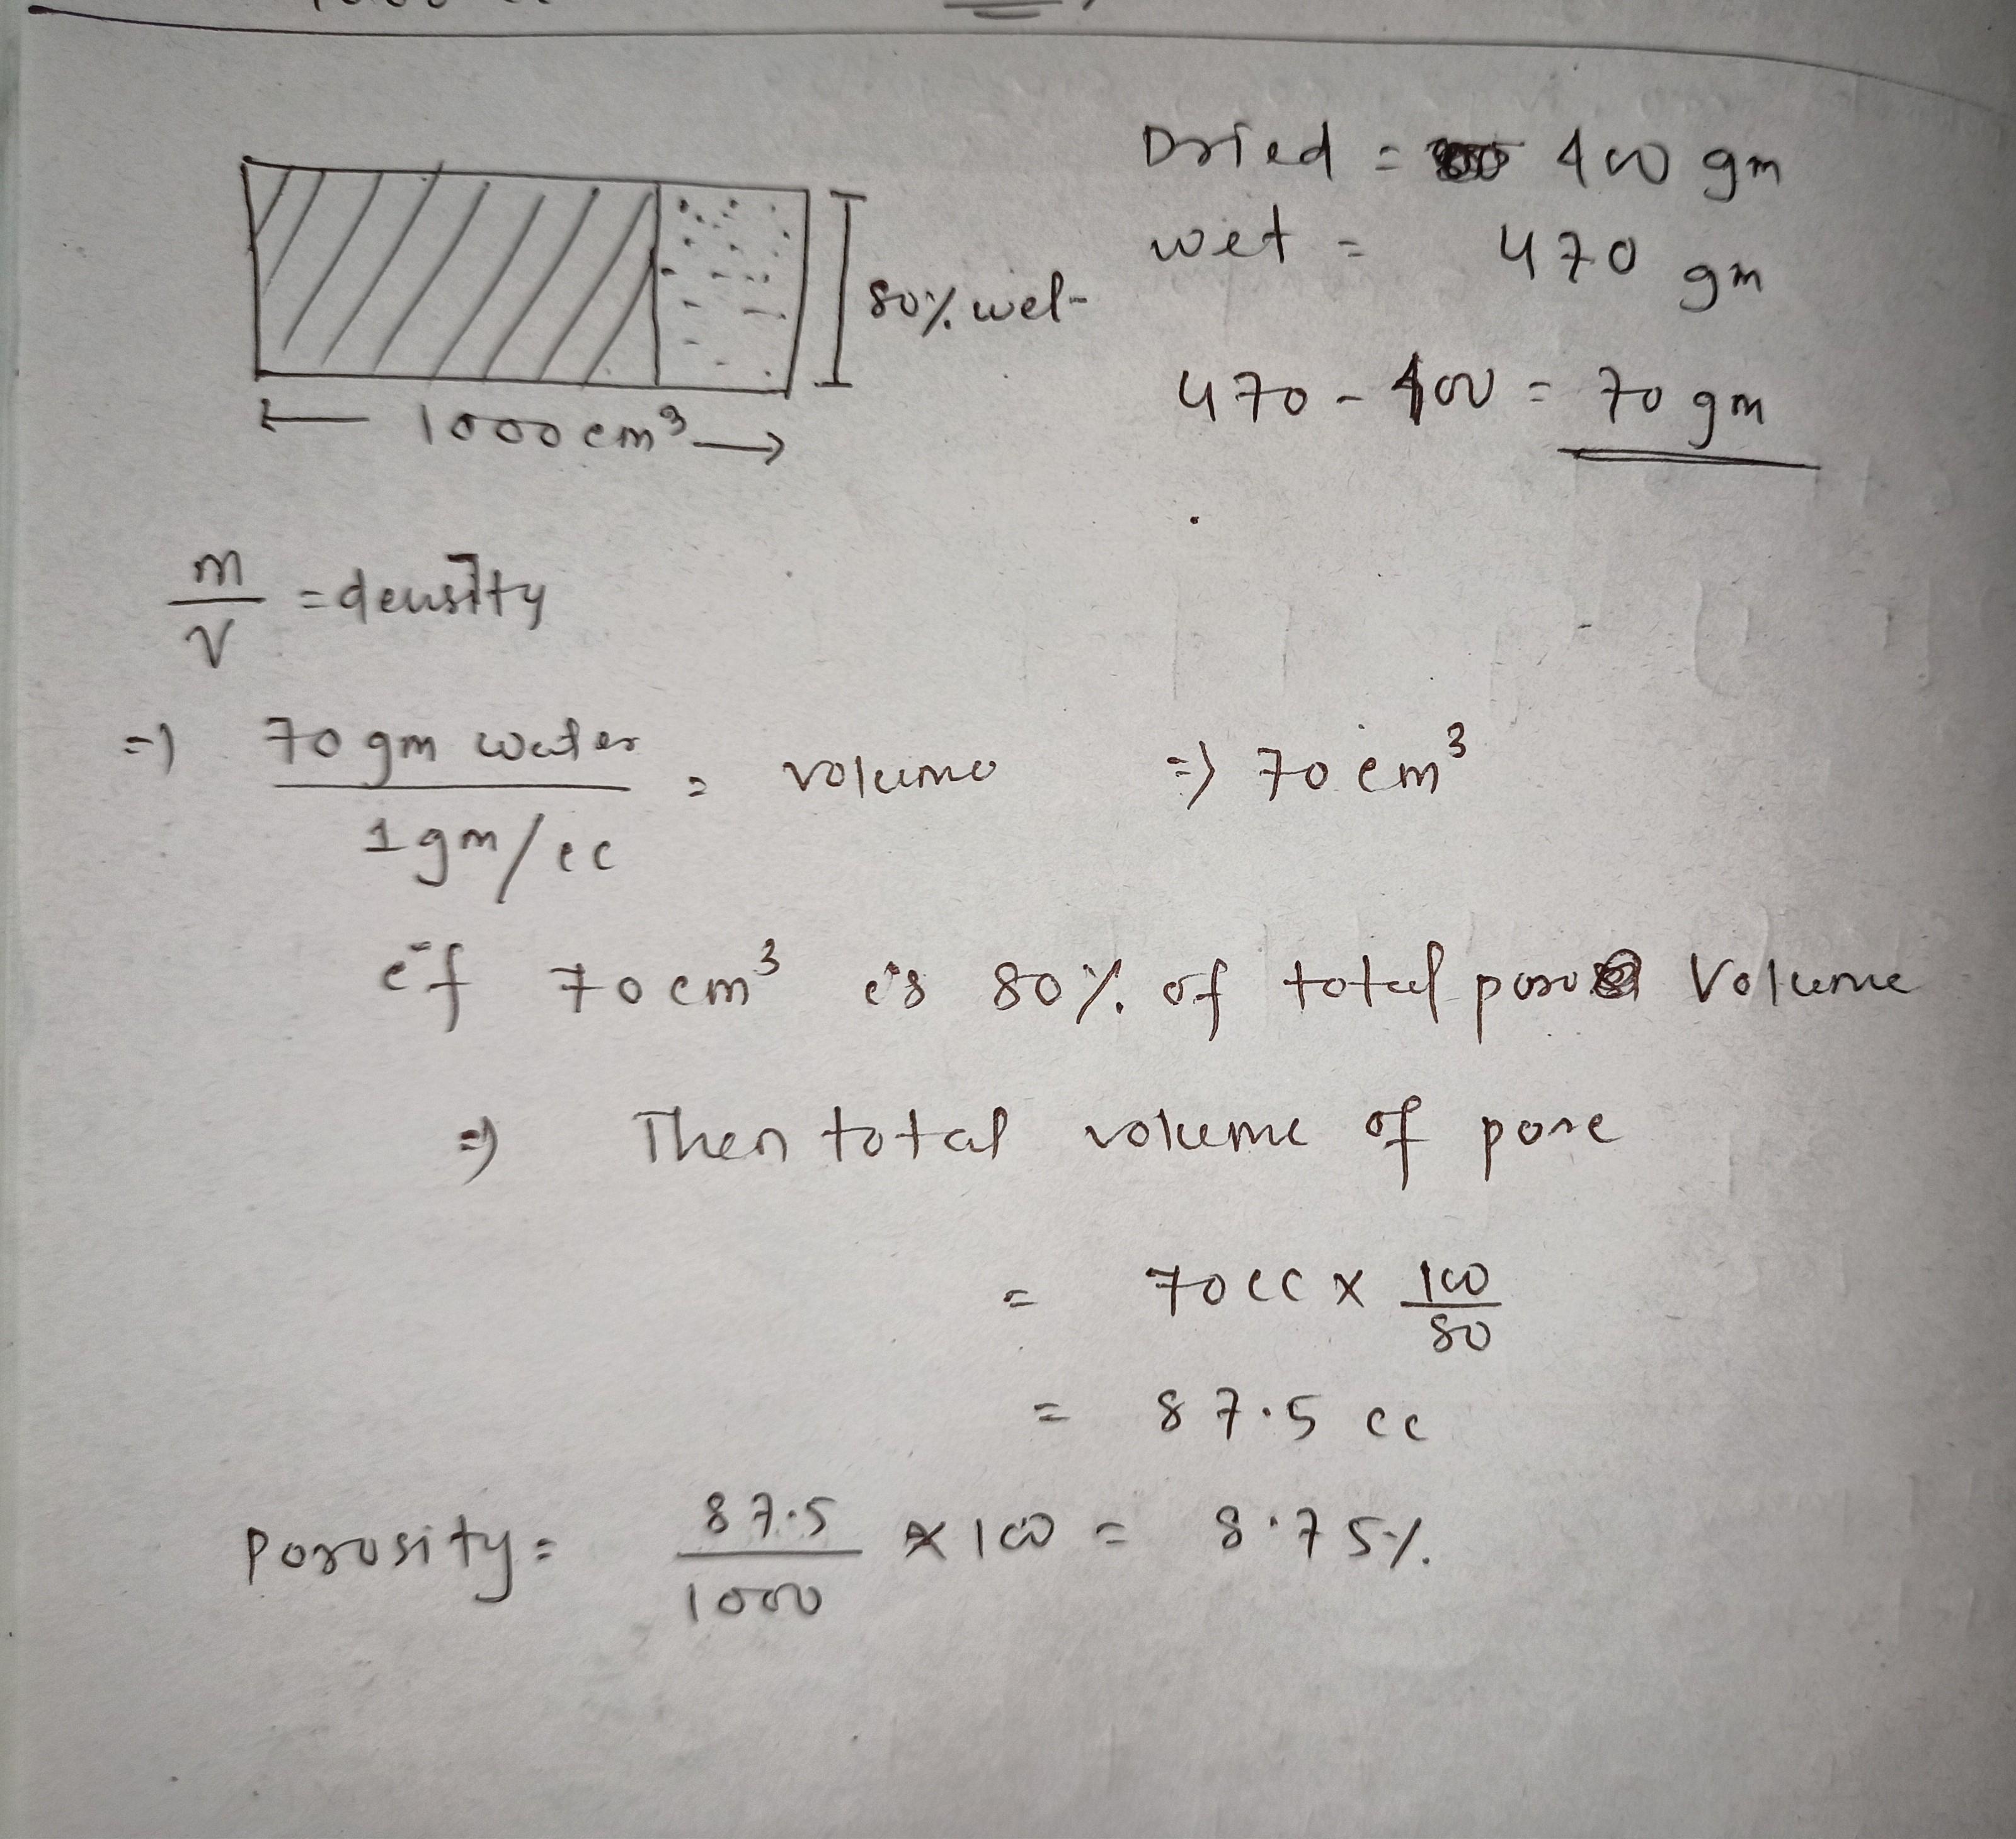 Dried = 400 gm
wet = 470 gm
80% wet
470 - 400 = 70 gm
1000 cm³
m/V = density
=) 70 gm water / 1 gm/cc = volume => 70 cm³
if 70 cm³ is 80% of total pore Volume
=) Then total volume of pore
= 70 cc x 100/80
= 87.5 cc
Porosity = 87.5/1000 x 100 = 8.75%.